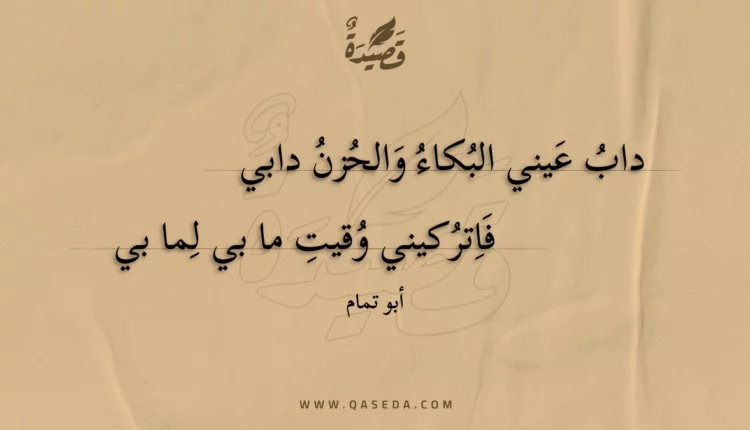 قَصِيدَةٌ
دابُ عَيني البُكاءُ وَالحُزنُ دابي
فَاِترُكيني وُقيتِ ما بي لِما بي
أبو تمام
WWW.QASEDA.COM